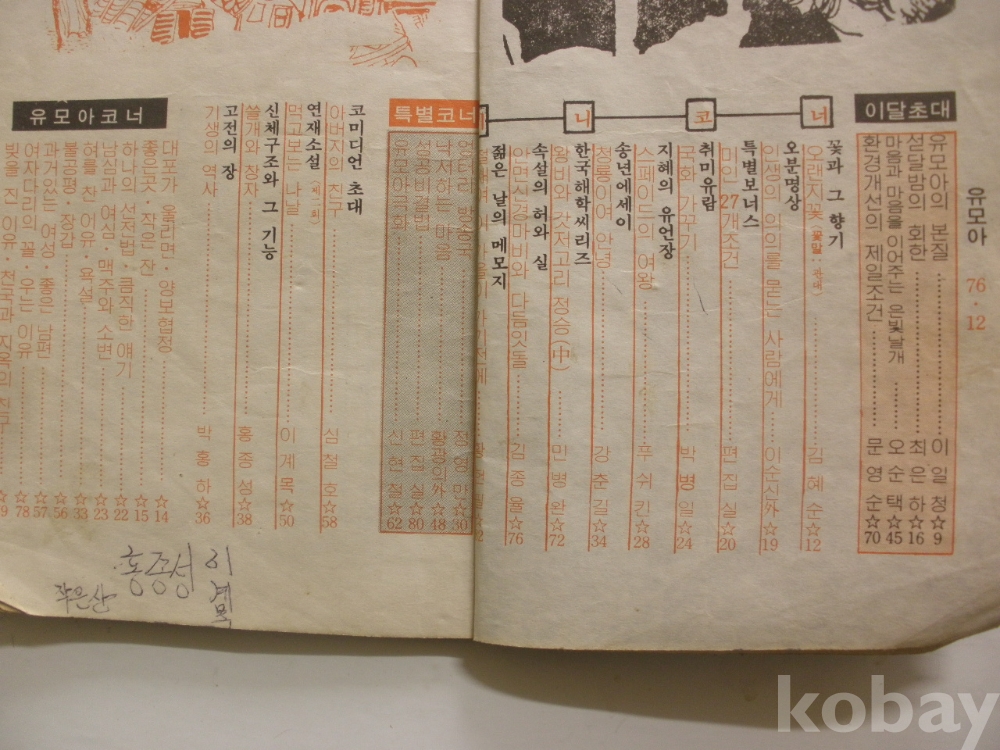 유모아 76·12
이달초대
유모아의 본질 이일청☆9
섣달밤의 회한 최은하☆16
마음과 마음을 이어주는 은빛날개 오순택☆45
환경개선의 제일조건 문영순☆70
미니코너
꽃과 그 향기
오랜지꽃 김혜순☆12
오분명상
인생의 의의를 묻는 사람에게 이순신外☆19
특별보너스
미인 27개조건 편집실☆20
취미유람
국화 가꾸기 박병일☆24
지혜의 유언장
스페이드의 여왕 푸쉬킨☆28
송년에세이
청룡이여 안녕 강춘길☆34
한국해학씨리즈
왕비와 갓저고리 정승(中) 민병완☆72
속설의 허와 실
안면신경마비와 다듬잇돌 김종율☆76
젊은 날의 메모지
특별코너
엉터리 방송국 정영만☆30
낙서하는 마음 황광인外☆48
성공비결법 편집실☆80
유모아극화 신현철☆62
코미디언 초대
아버지의 친구 심철호☆58
연재소설
먹고보는 나날 이계목☆50
신체구조와 그 기능
쓸개와 창자 홍종성☆38
고전의 장
기생의 역사 박홍하☆36
유모아코너
대포가 울리면·양보협정 ☆14
좋은곳·작은 잔 ☆15
하나의 선전법·큼직한 얘기 ☆22
남심과 여심·맥주와 소변 ☆23
혀를 찬 이유·욕설 ☆33
불공평·장갑 ☆56
과거있는 여성·좋은 남편 ☆57
여자다리의 꼴·우는 이유 ☆78
빚을 진 이유·천국과 지옥의 친구
이계목
홍종성
작은산
kobay